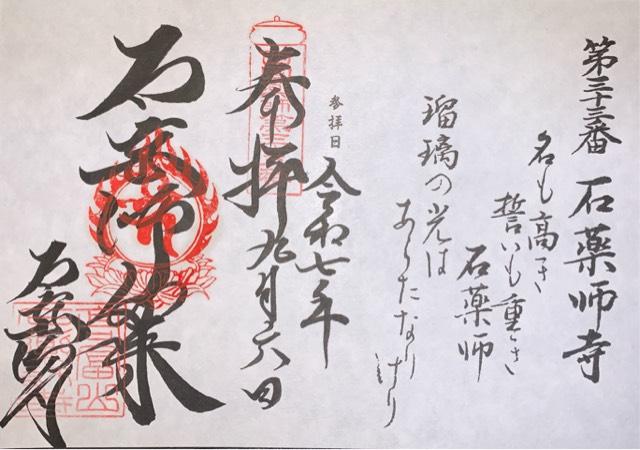 第三十三番 石薬師寺
名も高き
誓いも重き
石薬師
瑠璃の光は
あらたなりけり
参拝日
令和七年
九月六日
奉拝
石薬師佛様
石薬師寺